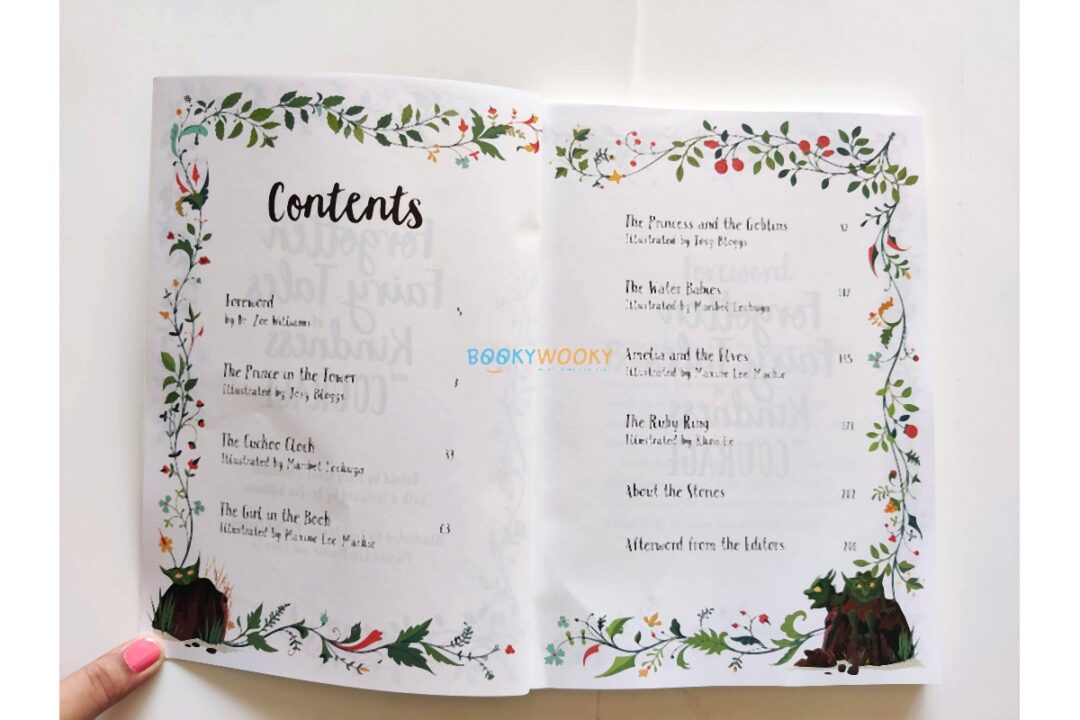 Contents
Foreword
by Dr Zoe Williams
5
The Prince in the Tower
Illustrated by Josy Bloggs
The Cuckoo Clock
Illustrated by Maribel Lechuga
33
The Girl in the Book
Illustrated by Maxine Lee Mackie
63
The Princess and the Goblins
Illustrated by Josy Bloggs
The Water Babies
Illustrated by Maribel Lechuga
Amelia and the Elves
Illustrated by Maxine Lee Mackie
The Ruby Ring
Illustrated by Khoa Le
171
About the Stories
202
Afterword from the Editors
206
BOOKYWOOKY